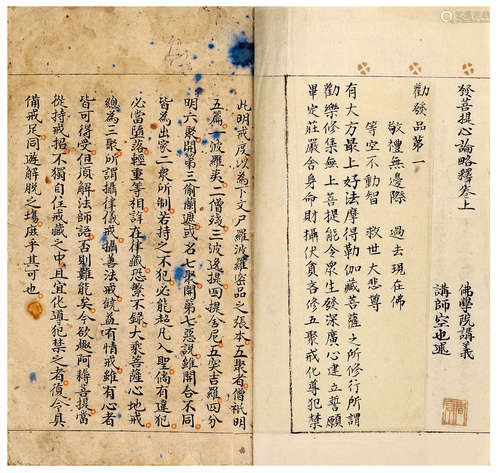 發菩提心論略釋卷上
佛學院講義
講師空也述
勸發品第一
敬禮無邊際 過去現在佛
等空不動智 救世大悲尊
有大方最上妙法摩得勒伽藏菩薩之所修行所謂
勸樂修集無上菩提能令眾生發深廣心建立誓願
畢定莊嚴舍身命財攝伏貪吝修五聚戒化導犯禁
此明戒度以為下文尸羅波羅密品之張本五聚者僧祇明
五篇一波羅夷二僧殘三波逸提四提舍尼五突吉羅四分
明六聚開第三偷蘭遮或名七聚開第七惡說雖開合不同
皆為出家二眾所制若持之不犯必能超凡入聖倘有違犯
必當墮落輕重等相詳在律藏恐繁不錄大乘菩薩心地戒
總為三聚所謂攝律儀戒攝善法戒饒益有情戒雖有心者
皆可得受但須解法師語否則難能矣今欲趣阿耨菩提當
從持戒始不獨自住戒藏之中且宜化導犯禁之者復令具
備戒足同遊解脫之場庶乎其可也